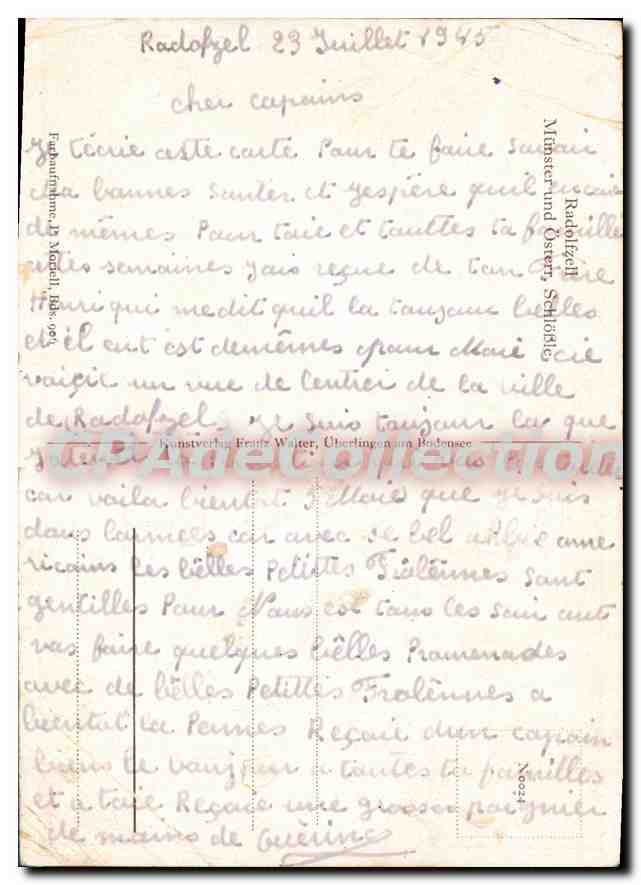 Radofzel 23 Juillet 1945
cher capains
Je técrie cette carte Pour te faire savair
ma bannes Santer et Jespère quil en
de mêmes Pour taie et tauttes ta famille
semaines Jais reçue de tan
Henri qui me dit quil la taujaur belles
et il ent est de mêmes Paur Maie
vaiçit un vue de Lentrer de la ville
de Radofzel Je Suis taujaur la que
car vaila bientot 5 Maie que Je Suis
dans Larmees car avec se bel ame
ricains Les bêlles Petittes Frâlênnes Sant
gentilles Paur Naus est taus les sair ant
vas faire quelques bêlles Pramenades
avec de bêlles Petittes Frâlênnes a
bientot la Pennes Reçaie dun capain
bians le banjaur a tautes ta familles
et a taie Reçaie une grosser paignier
de mains de Guérine
Radolfzell
Münster und Österr. Schlößle
Farbaufnahme, P. Moriell, Bds. 906
Kunstverlag Franz Walter, Überlingen am Bodensee
CPAdecollection
N 0024